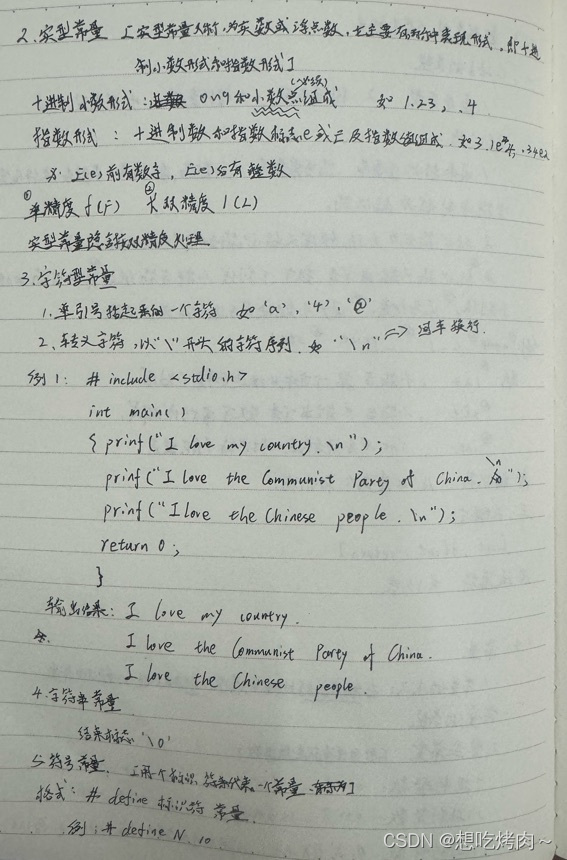 2.实型常量 [实型常量又称为实数或浮点数,它主要有两种表现形式,即十进
制小数形式和指数形式]
十进制小数形式: 0~9和小数点组成 (必须) 如 1.23, .4
指数形式: 十进制数和指数标志e或E及指数组成. 如3.1e4, .34e2
※ E(e)前有数字, E(e)后有整数
①单精度 f(F) ②长双精度 l(L)
实型常量隐含按双精度处理
3.字符型常量
1.单引号括起来的一个字符 如 'a', '4', '@'
2.转义字符,以"\"开头的字符序列.如 "\n" => 回车换行.
例1: # include <stdio.h>
int main()
{ prinf("I love my country.\n");
prinf("I love the Communist Party of China.\n");
prinf("I love the Chinese people.\n");
return 0;
}
输出结果: I love my country.
I love the Communist Party of China.
I love the Chinese people.
4.字符串常量
结束标志 '\0'
5.符号常量. [用个标识符来代表一个常量]
格式: # define 标识符 常量
例: # define N 10
CSDN @想吃烤肉~